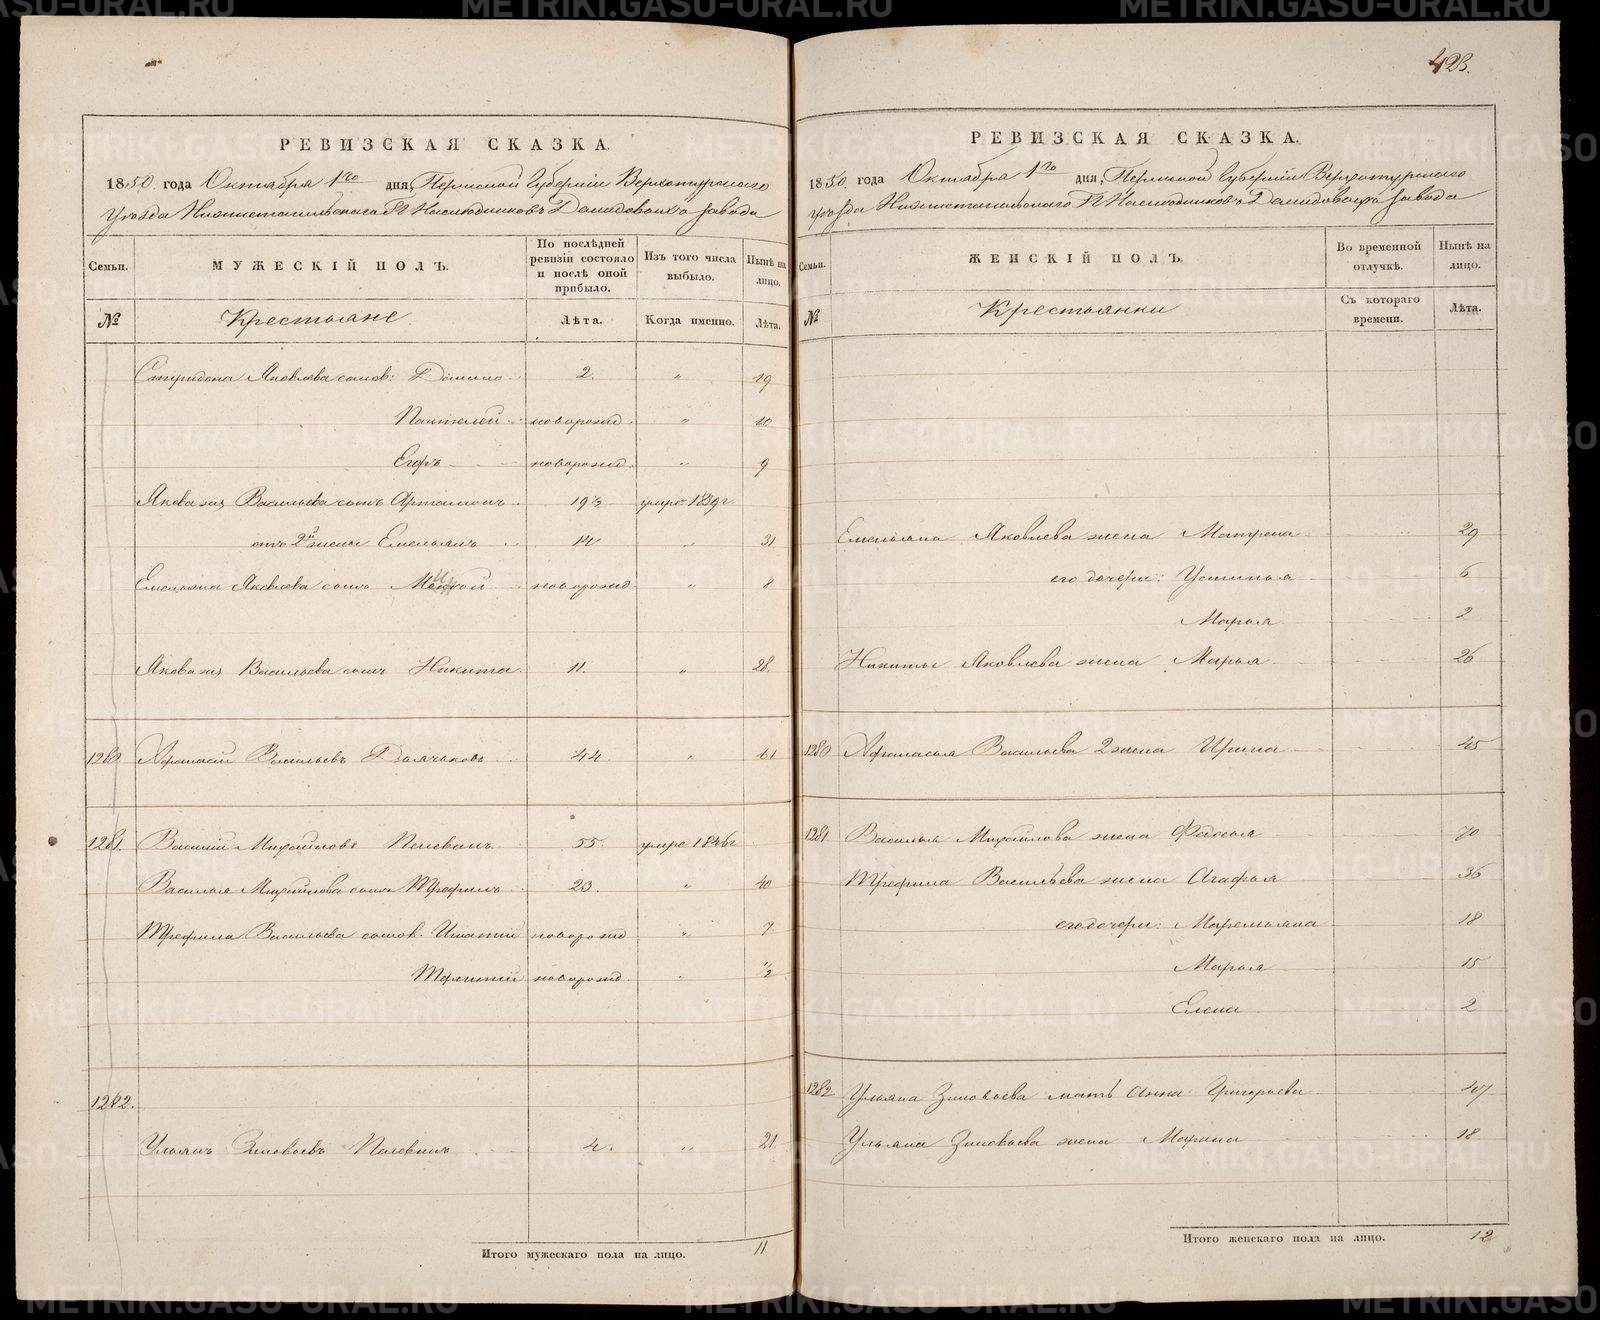 423.
РЕВИЗСКАЯ СКАЗКА.
1850 года Октября 1го дня, Пермской Губернии Верхотурского
Уезда Нижнетагильского Наследниковъ Демидовыхъ завода
Семьи.
МУЖЕСКІЙ ПОЛЪ.
По послѣдней ревизіи состояло и послѣ оной прибыло.
Изъ того числа выбыло.
Нынѣ на лицо.
№
Крестьяне
Лѣта.
Когда именно.
Лѣта.
Спиридона Яковлева сынов: 2. " 19
Панталей новорожд. " 10
Егоръ новорожд. " 9
Якова же Васильева сынъ Артамонъ 19½ умре 1839 г
отъ 2й жены Емельянъ 14 " 31
Емельяна Яковлева сынъ новорожд. " 8
Якова же Васильева сынъ Никита 11. " 28.
1280 Афанасій Васильевъ 44 " 61
1281. Василій Михайловъ Пелевинъ 55. умре 1846г
Василья Михайлова сынъ Трефилъ 23. " 40
Трефила Васильева сынов. Игнатій новорожд " 7
Терентій новорожд. " ½
1282.
Ульянъ Зиновьевъ Пелевинъ 4. " 21
Итого мужескаго пола на лицо. 11
РЕВИЗСКАЯ СКАЗКА.
1850. года Октября 1го дня, Пермской Губерніи Верхотурского
Уезда Нижнетагильского Наследниковъ Демидовыхъ завода
Семьи.
ЖЕНСКІЙ ПОЛЪ.
Во временной отлучкѣ.
Нынѣ на лицо.
№
Крестьянки
Съ котораго времени.
Лѣта.
Емельяна Яковлева жена Матрена 29
его дочери: Устинья 6
Марья 2
Никиты Яковлева жена Марья 26
1280 Афанасья Васильева 2 жена Ирина 45
1281. Василья Михайлова жена Федосья 70
Трефила Васильева жена Агафья 36
его дочери: Маремьяна 18
Марья 15
Елена 2
1282 Ульяна Зиновьева мать Анна Григорьева 47
Ульяна Зиновьева жена Марина 18
Итого женскаго пола на лицо. 12
METRIKI.GASO-URAL.RU